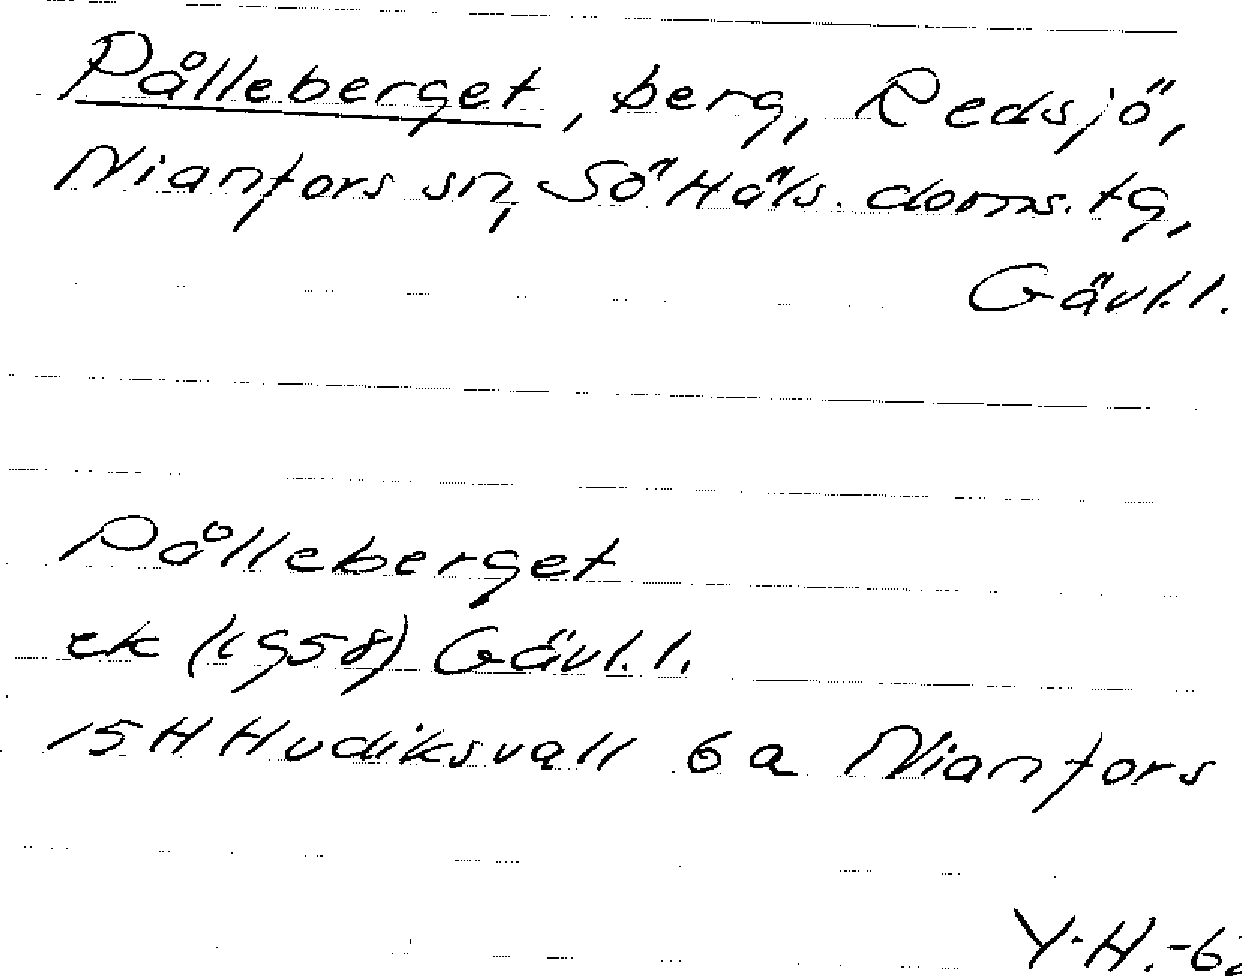 Pålleberget, berg, Redsjö,
Nianfors sn, Sö Häls. doms. tg,
Gävl. l.
Pålleberget
ek (1958) Gävl. l.
15H Hudiksvall 6a Nianfors
Y.H.-62